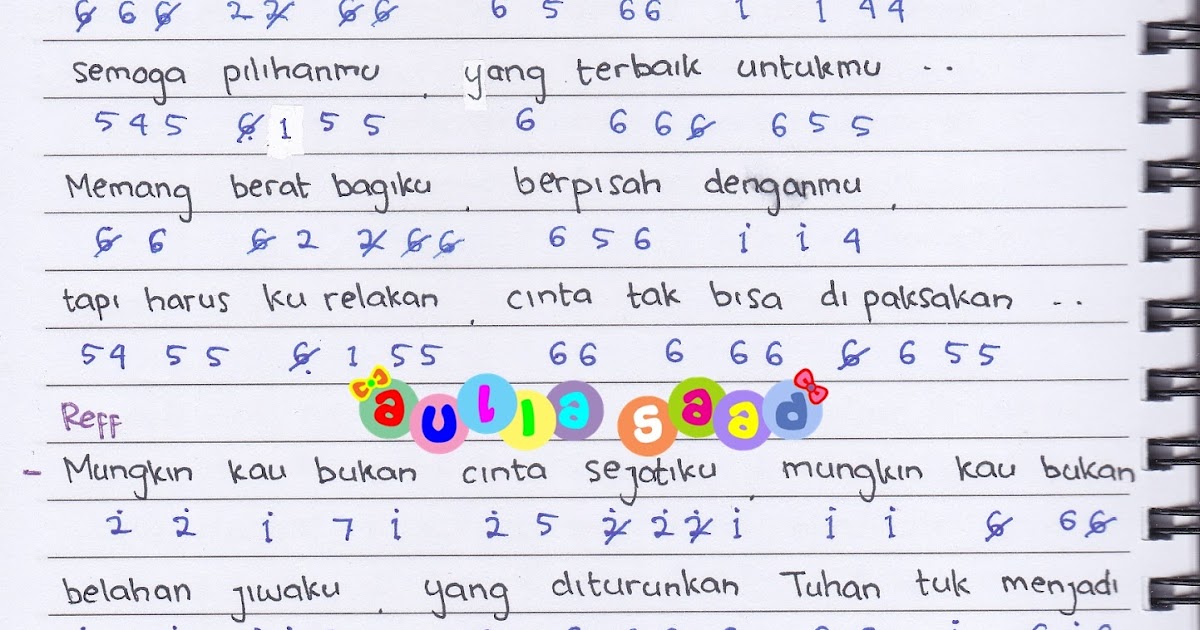 6 6 6 2 2 6 6 6 5 6 6 1 1 4 4
semoga pilihanmu , yang terbaik untukmu ..
5 4 5 6 1 5 5 6 6 6 6 6 5 5
Memang berat bagiku , berpisah denganmu ,
6 6 6 2 2 6 6 6 5 6 i i 4
tapi harus ku relakan , cinta tak bisa di paksakan ..
5 4 5 5 6 1 5 5 6 6 6 6 6 6 6 5 5
aulia saad
Reff
- Mungkin kau bukan cinta sejatiku , mungkin kau bukan
2 2 i 7 i 2 5 2 2 2 i i i 6 6 6
belahan jiwaku , yang diturunkan Tuhan tuk menjadi